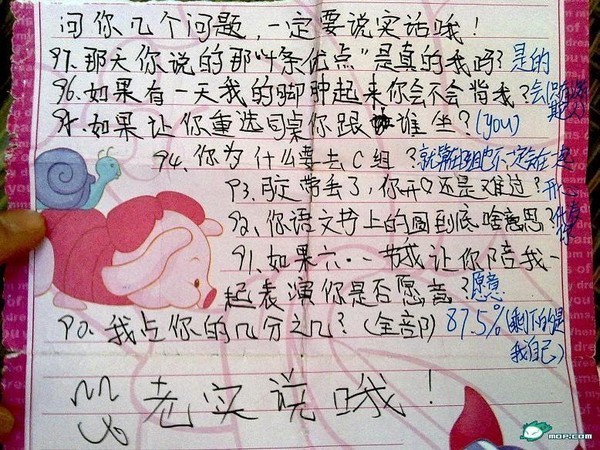 问你几个问题，一定要说实话哦！
97.那天你说的那"十条优点"是真的我吗？是的
96.如果有一天我的脚肿起来你会不会背我？会
95.如果让你重选同桌你跟谁坐？(you)
94.你为什么要去C组？就算在B组也不一定会在一起
93.胶带丢了，你开心还是难过？开心
92.你语文书上的圆到底啥意思？代表你
91.如果六·一节我让你陪我一
起表演你是否愿意？愿意
90.我占你的几分之几？(全部) 87.5%(剩下的是
我自己)
老实说哦！
MOP.COM